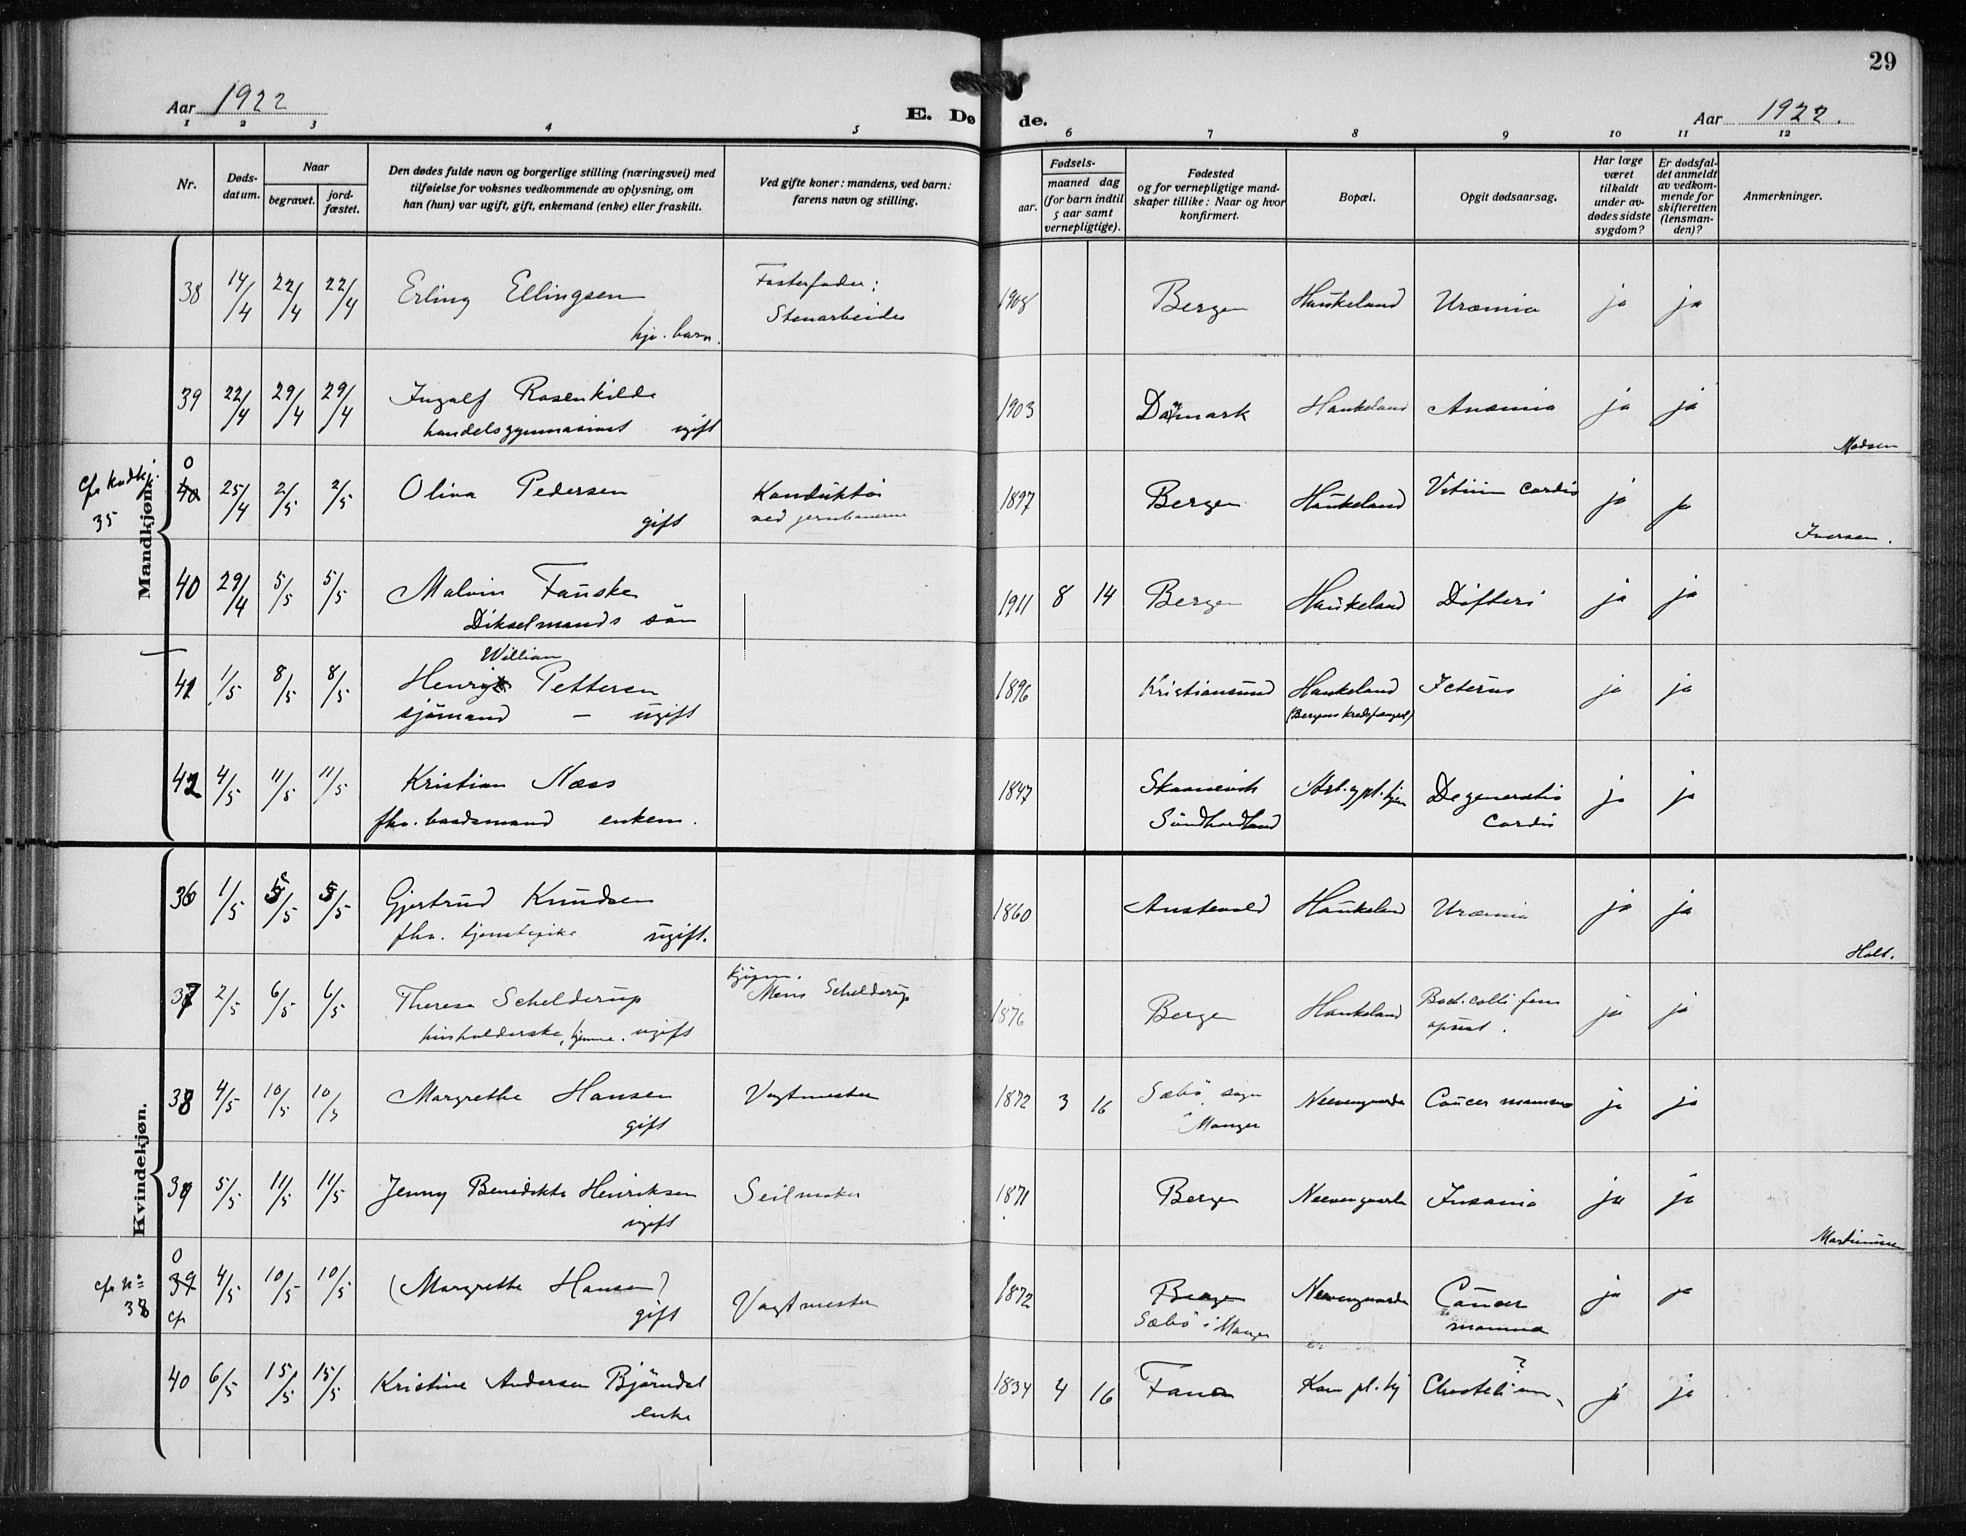 29
Aar 1922
E. Døde.
Aar 1922.
1 2 3 4 5 6 7 8 9 10 11 12
Nr.
Døds-
datum.
Naar
begravet.
jord-
fæstet.
Den dødes fulde navn og borgerlige stilling (næringsvei) med
tilføielse for voksnes vedkommende av oplysning, om
han (hun) var ugift, gift, enkemand (enke) eller fraskilt.
Ved gifte koner: mandens, ved barn:
farens navn og stilling.
Fødsels-
aar.
maaned dag
(for barn indtil
5 aar samt
vernepligtige).
Fødested
og for vernepligtige mand-
skaper tillike: Naar og hvor
konfirmert.
Bopæl.
Opgit dødsaarsag.
Har læge
været
tilkaldt
under av-
dødes sidste
sygdom?
Er dødsfal-
det anmeldt
av vedkom-
mende for
skifteretten
(lensman-
den)?
Anmerkninger.
Mandkjøn.
38 14/4 22/4 22/4 Erling Ellingsen Fosterfader: Bergen Haukeland Uræmia ja ja
hjv. barn. Stenarbeider
39 22/4 29/4 29/4 Ingolf Rosenkilde 1903 Danmark Haukeland Anæmia ja ja
handelsgymnasiast ugift
Madsen
cfr kvdkj. 35
0 40 25/4 2/5 2/5 Oliva Pedersen Konduktør 1897 Bergen Haukeland Vitium cordis ja ja
gift ved jernbanerne
Iversen.
40 29/4 5/5 5/5 Malvin Fauske 1911 8 14 Bergen Haukeland Difteri ja ja
Dikselmands søn
William
41 1/5 8/5 8/5 Henry Pettersen 1896 Kristiansund Haukeland Icterus ja ja
sjömand - ugift (Bergens kredsfængsel)
42 4/5 11/5 11/5 Kristian Næss 1847 Skaanevik Degeneratio ja ja
fhv. baadsmand enkem. Søndhordland Cordis
Kvindekjøn.
36 1/5 5/5 5/5 Gjertrud Knudsen 1860 Austevold Haukeland Uræmia ja ja
fhv. tjenestepike ugift.
Holt.
37 2/5 6/5 6/5 Theresa Schelderup kjøpm. Mens Schelderup 1876 Bergen Haukeland ja ja
husholderske, hjemme. ugift
38 4/5 10/5 10/5 Margrethe Hansen Vagtmester 1872 3 16 Sæbö sogn Neevengaarden Cancer mammae ja ja
gift i Manger
39 5/5 11/5 11/5 Jenny Benedikte Henriksen Seilmaker 1871 Bergen Neevengaarden Insania ja ja
ugift
Martinussen
cfr No 38
0 39 cfr 4/5 10/5 10/5 (Margrethe Hansen) Vagtmester 1872 Bergen Neevengaarden Cancer ja ja
gift Sæbö i Manger mamma
40 6/5 15/5 15/5 Kristine Andersen Björndal 1834 4 16 Fana Kom pl. hj ? ja ja
enke